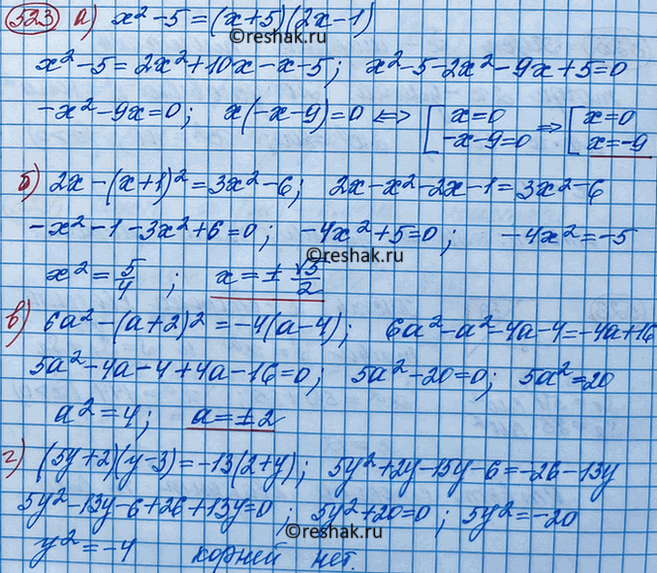 523 а) x² - 5 = (x+5)(2x-1)
©reshak.ru
x² - 5 = 2x² + 10x - x - 5; x² - 5 - 2x² - 9x + 5 = 0
-x² - 9x = 0; x(-x-9) = 0 <=> [ x=0 => [ x=0
-x-9=0 x=-9
б) 2x - (x+1)² = 3x² - 6; 2x - x² - 2x - 1 = 3x² - 6
-x² - 1 - 3x² + 6 = 0; -4x² + 5 = 0; -4x² = -5
©reshak.ru
x² = 5/4; x = ± √5/2
в) 6a² - (a+2)² = -4(a-4); 6a² - a² - 4a - 4 = -4a + 16
5a² - 4a - 4 + 4a - 16 = 0; 5a² - 20 = 0; 5a² = 20
a² = 4; a = ±2
г) (5y+2)(y-3) = -13(2+y); 5y² + 2y - 15y - 6 = -26 - 13y
5y² - 13y - 6 + 26 + 13y = 0; 5y² + 20 = 0; 5y² = -20
©reshak.ru
y² = -4 корней нет.